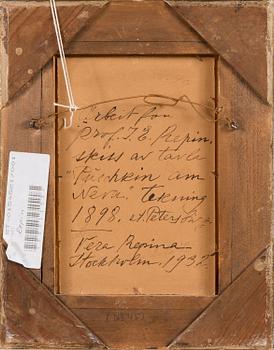 Arbeit fon
Prof. I. E. Repin.
skiss av tavla
"Puschkin am
Neva." tekning
1898. st. Petersburg
Vera Repina
Stockholm. 1932